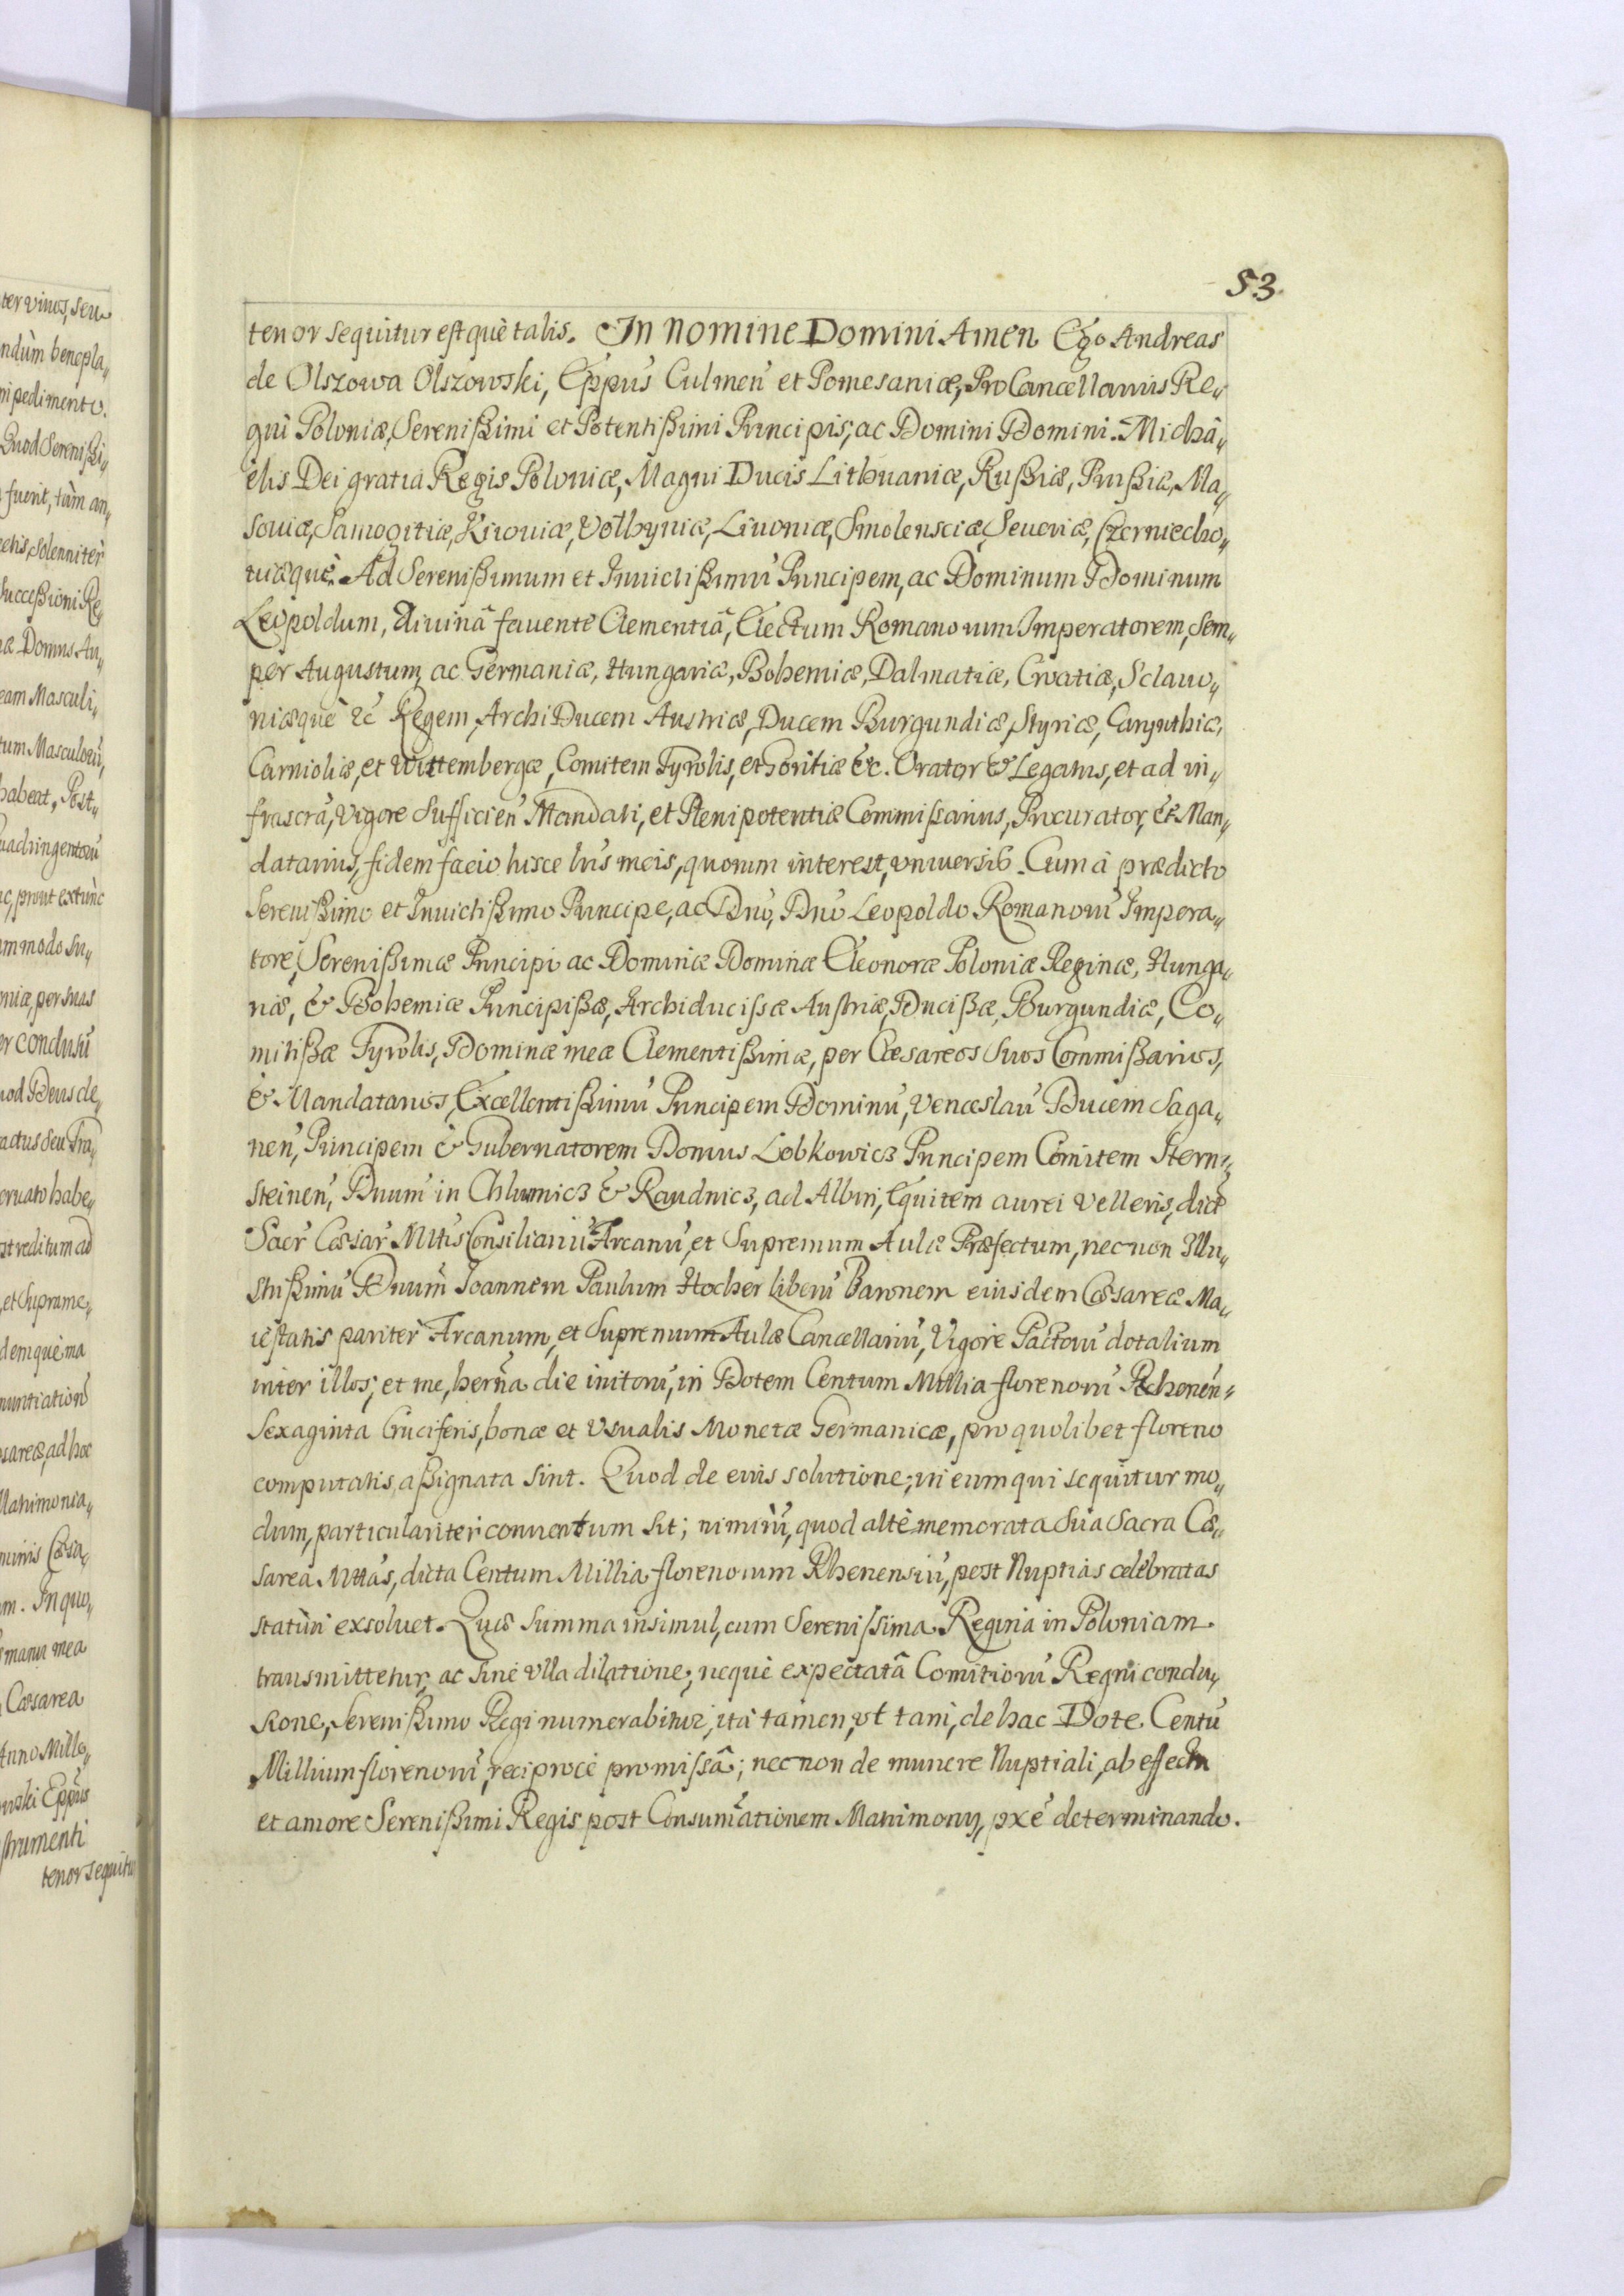 53.
tenor sequitur estquè talis. In nomine Domini Amen Ego Andreas
de Olszowa Olszowski, Eppus Culmen̄ et Pomesaniæ, ProCancellarius Re„
gni Poloniæ, Serenißimi et Potentißimi Principis, ac Domini Domini Michã„
elis Dei gratia Regis Poloniæ, Magni Ducis Lithuaniæ, Rußiæ, Prußiæ, Ma„
souiæ, Samogitiæ, Kiiouiæ, Volhyniæ, Liuoniæ, Smolensciæ, Seueriæ, Czerniecho„
uiæquè. Ad Serenißimum et Inuictißimū Principem, ac Dominum Dominum
Leopoldum, diuinâ fauente Clementiâ, Electum Romanorum Imperatorem, Sem„
per Augustum, ac Germaniæ, Hungariæ, Bohemiæ, Dalmatiæ, Croatiæ, Sclauo„
niæquè &c Regem, ArchiDucem Austriæ, Ducem Burgundiæ, Styriæ, Carynthiæ,
Carnioliæ, et Wittembergæ, Comitem Tyrolis, et Goritiæ &c. Orator & Legatus, et ad in„
frascrā, Vigore Sufficien̄ Mandati, et Plenipotentiæ Commissarius, Procurator, et Man„
datarius, fidem facio hisce lris meis, quorum interest, vniuersis. Cum à prædicto
Serenißimo et Inuictißimo Principe, ac Dnō, Dnō Leopoldo Romanorū Impera„
tore, Serenißimæ Principi ac Dominæ Dominæ Eleonoræ Poloniæ Reginæ, Hunga„
riæ, & Bohemiæ Principißæ, Archiducissæ Austriæ, Ducißæ, Burgundiæ, Co„
mitißæ Tyrolis, Dominæ meæ Clementißimæ, per Cæsareos Suos Commißarios,
& Mandatarios, Excellentißimū Principem Dominū, Venceslaū Ducem Saga„
nen̄, Principem & Gubernatorem Domus Lobkowicz Principem Comitem Stern„
steinen̄, Dnum in Chlumicz & Raudnicz, ad Albin, Equitem aurei Velleris, dict̄
Sacr̄ Cæsar̄ Mttis Consiliariū Arcanū, et Supremum Aulæ Præfectum, nec non Illu„
strißimū Dnum Joannem Paulum Hocher Liberū Baronem eiusdem Cæsareæ Ma„
iestatis pariter Arcanum, et Supremum Aulæ Cancellariū, Vigore Pactorū dotalium
inter illos, et me, herña die initorū, in Dotem Centum Millia florenorū Rhenen„
Sexaginta Cruciferis, bonæ et Vsualis Monetæ Germanicæ, pro quolibet floreno
computatis, aßignata sint. Quod de eius solutione, in eum qui sequitur mo„
dum, particulariter conuentum sit; nimirū, quod altè memorata Sua Sacra Cæ„
sarea Mttas, dicta Centum Millia florenorum Rhenensiū, post Nuptias celebratas
statim exsoluet. Quæ Summa insimul, cum Serenissima Regina in Poloniam
transmittetur, ac sine vlla dilatione, nequè expectatâ Comitiorū Regni conclu„
sione, Serenißimo Regi numerabitur, ità tamen, vt tam, de hac Dote Centū
Millium florenorū, reciprocè promissâ; nec non de munere Nuptiali, ab effectu
et amore Serenißimi Regis post Consumationem Matrimonij, pxe determinando.